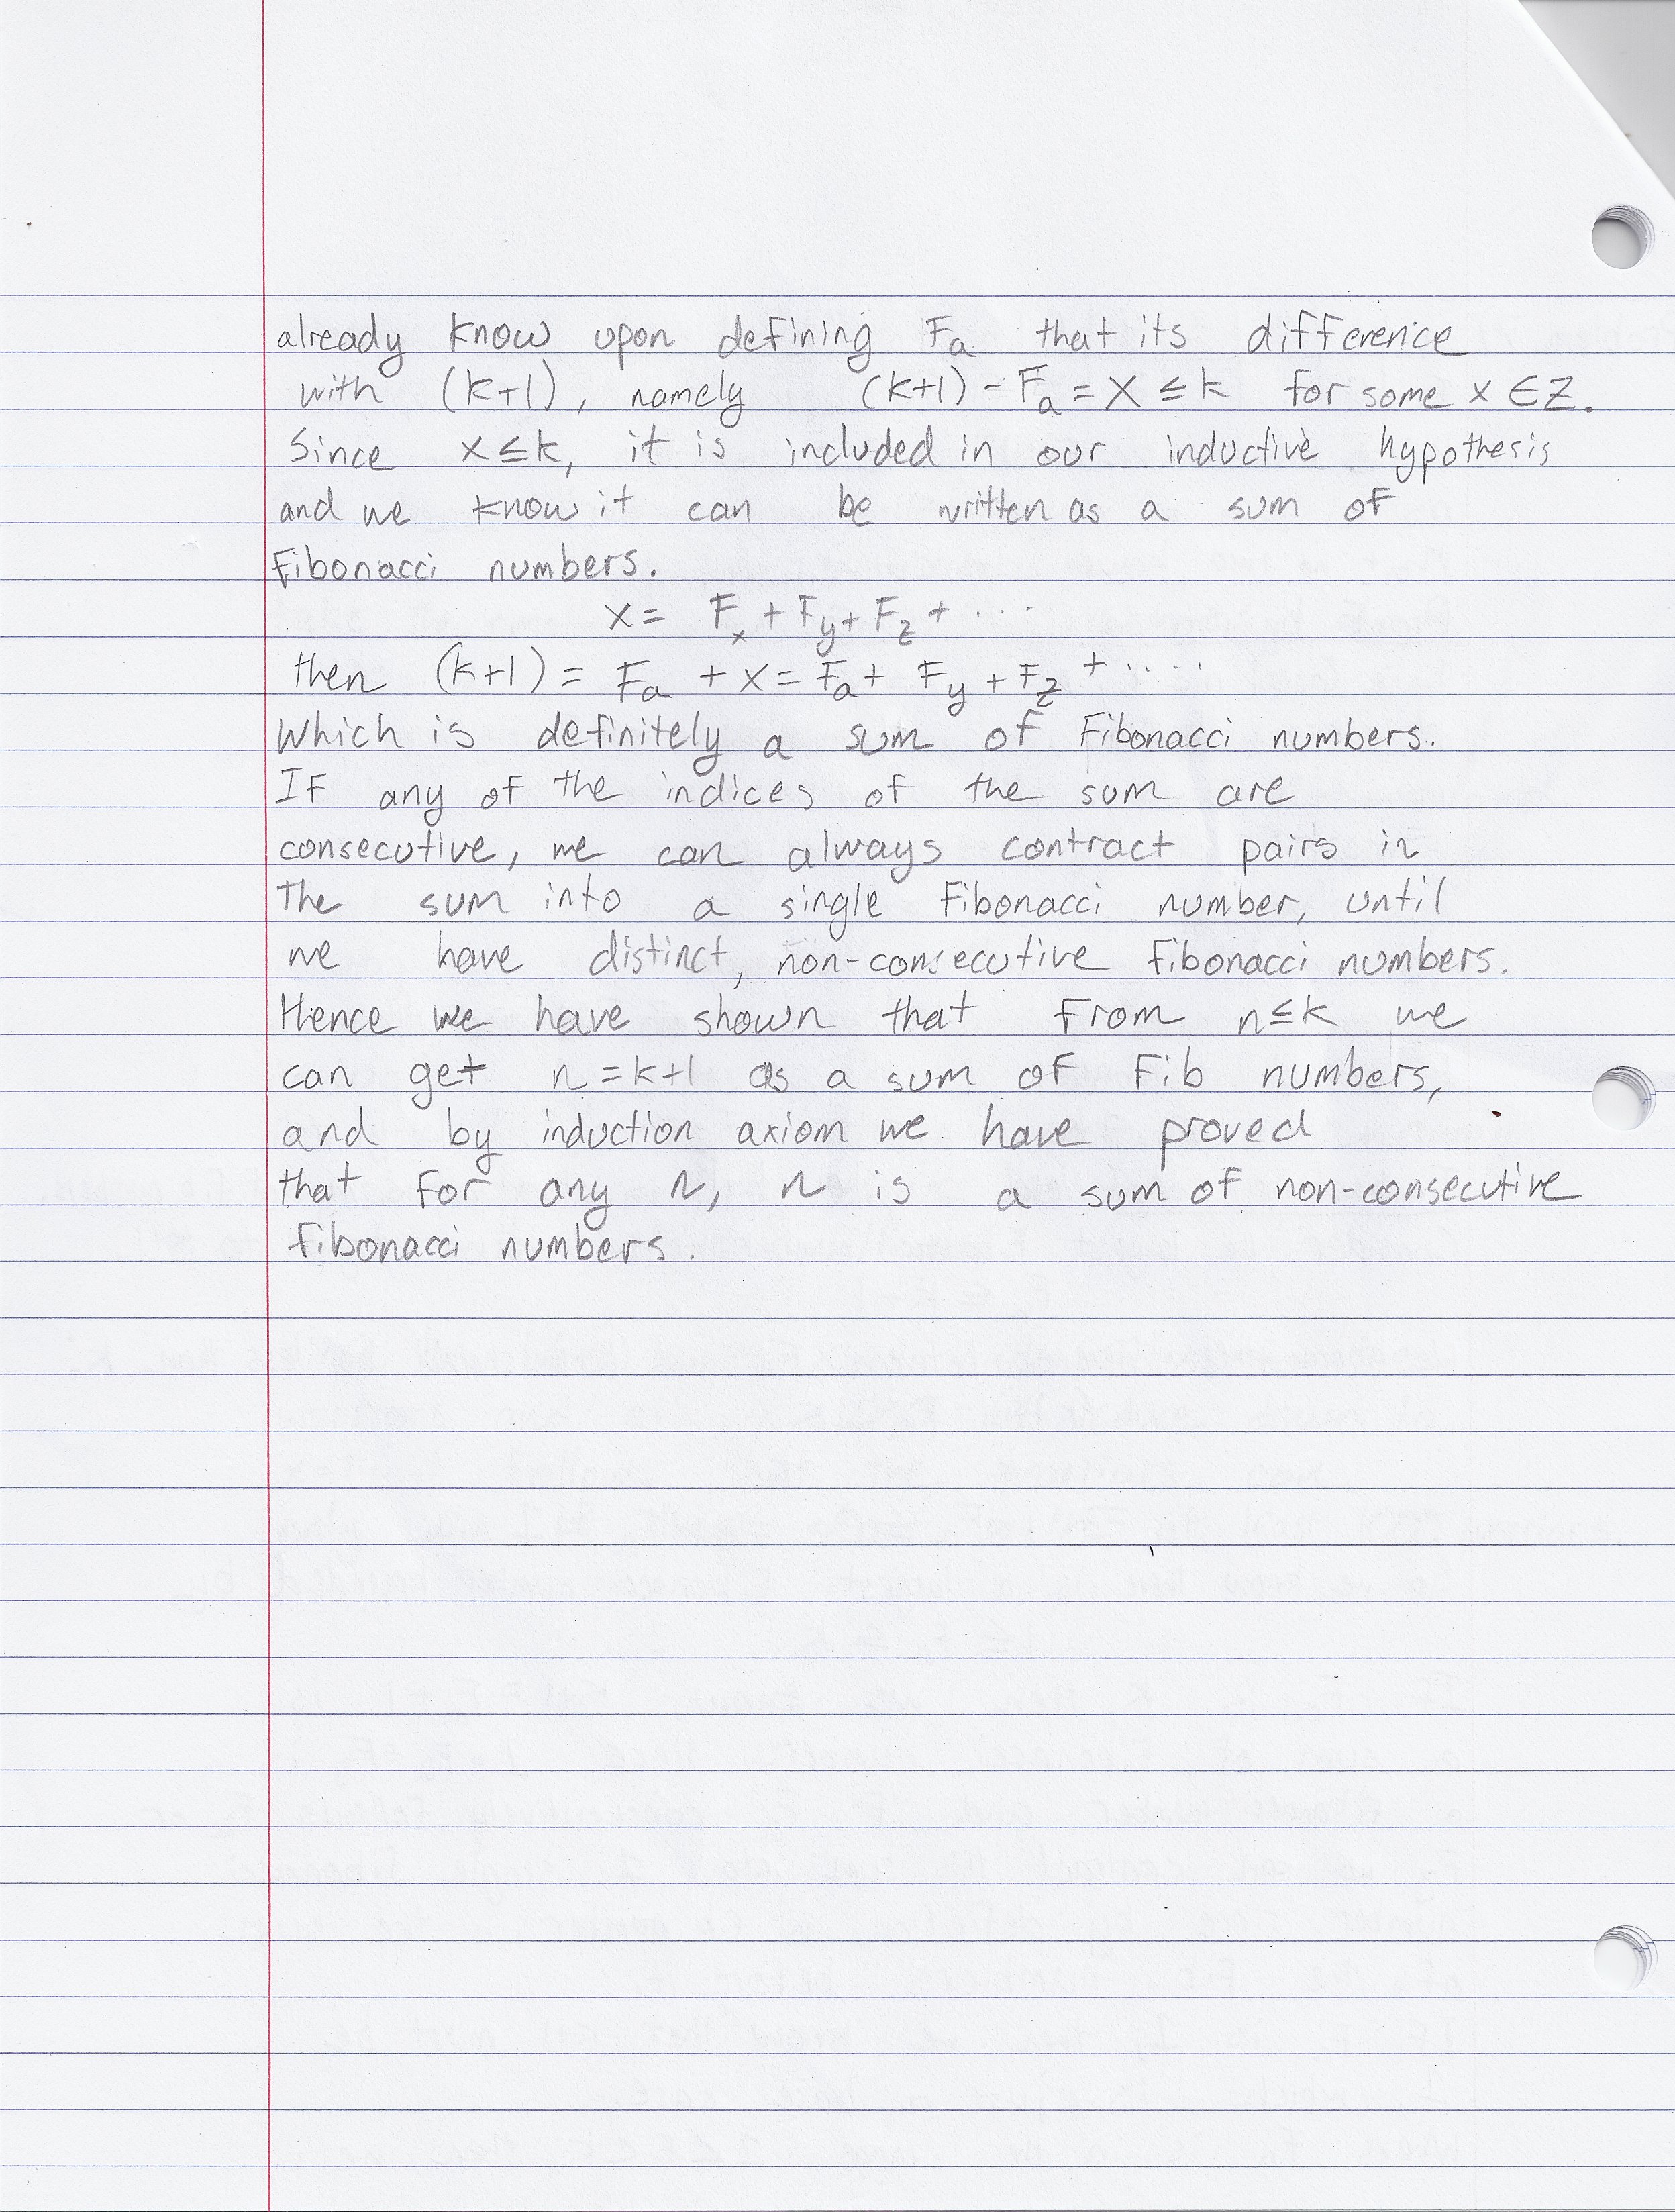 already know upon defining Fa that its difference
with (k+1), namely (k+1) - Fa = x ≤ k for some x ∈ Z.
Since x ≤ k, it is included in our inductive hypothesis
and we know it can be written as a sum of
Fibonacci numbers.
x = Fx + Fy + Fz + ...
then (k+1) = Fa + x = Fa + Fy + Fz + ....
Which is definitely a sum of Fibonacci numbers.
If any of the indices of the sum are
consecutive, we can always contract pairs in
the sum into a single Fibonacci number, until
we have distinct, non-consecutive fibonacci numbers.
Hence we have shown that from n≤k we
can get n=k+1 as a sum of Fib numbers,
and by induction axiom we have proved
that for any n, n is a sum of non-consecutive
fibonacci numbers.